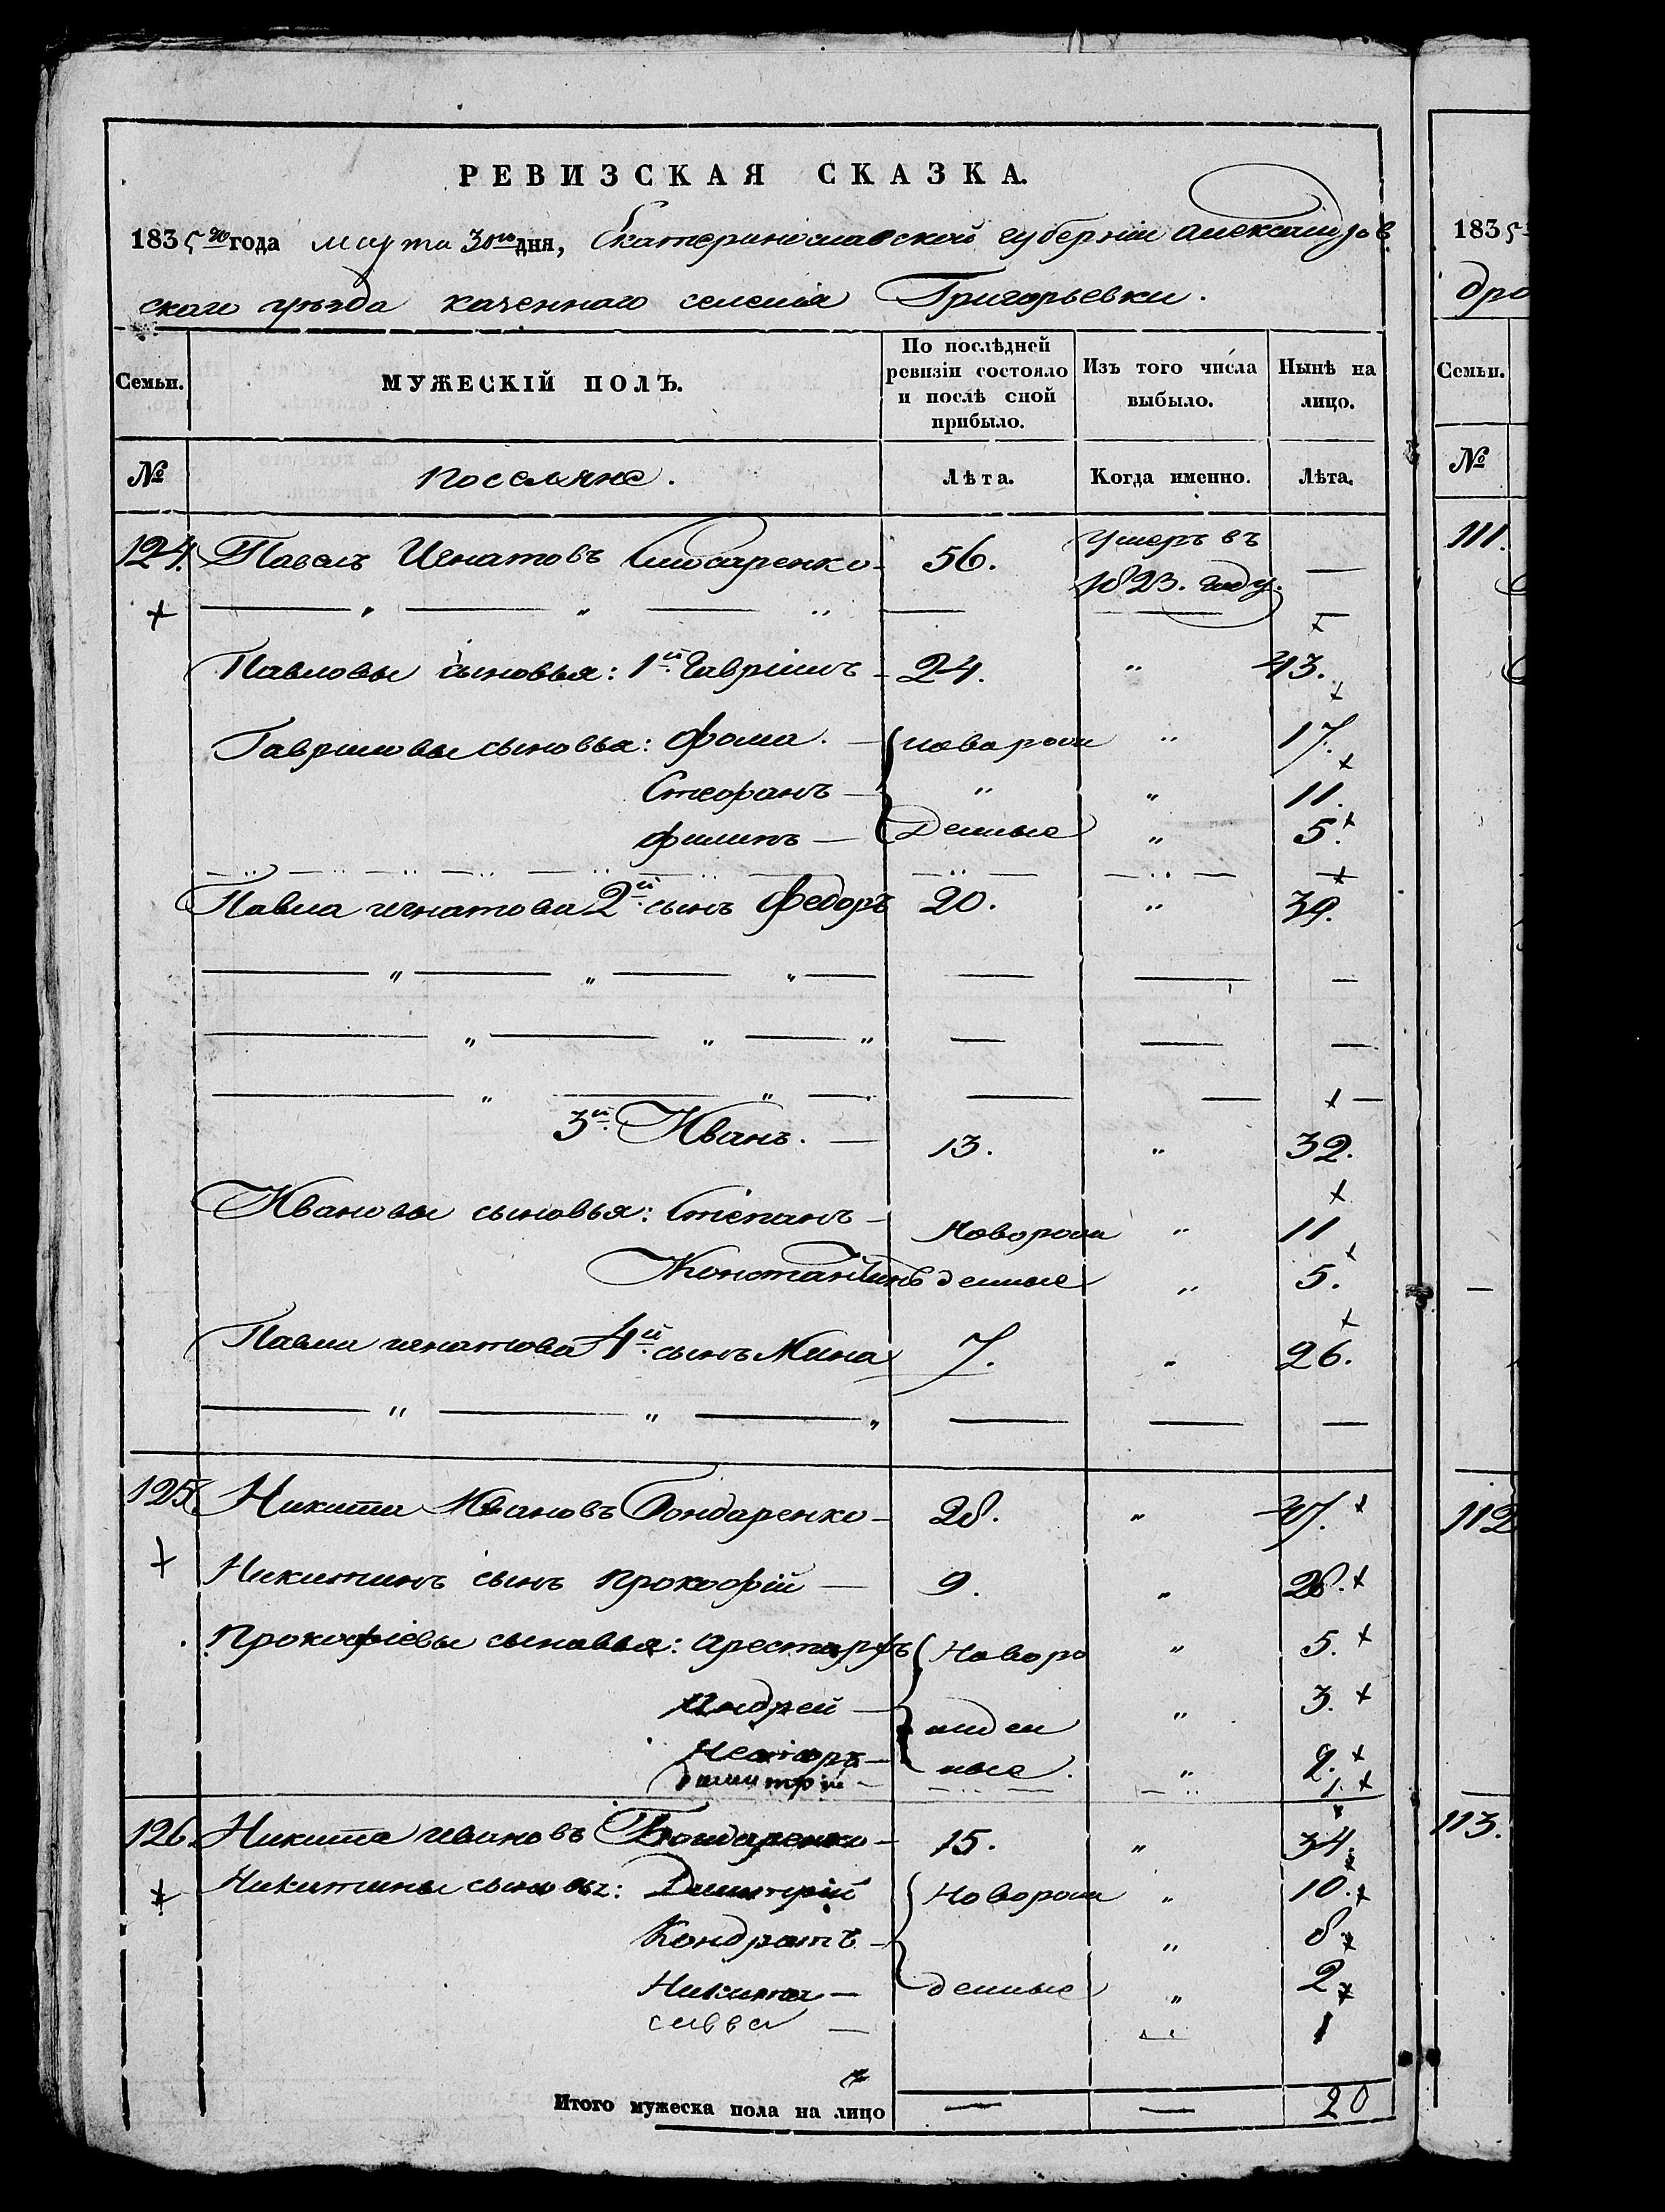 РЕВИЗСКАЯ СКАЗКА.
1835го года марта 30го дня, Екатеринославской губерніи Александров
скаго уѣзда казеннаго селенія Григорьевки.
Семьи. МУЖЕСКІЙ ПОЛЪ. По послѣдней ревизіи состояло и послѣ оной прибыло. Изъ того числа выбыло. Нынѣ на лицо.
№ Поселяне. Лѣта. Когда именно. Лѣта.
124. Павелъ Игнатовъ 56. умеръ въ 1823. году. —
Павловы сыновья: 1й Гаврілъ 24. " 43.
Гавриловы сыновья: Фома. — новорож " 17.
Стефанъ — " " 11.
Филипъ — денные " 5.
Павла Игнатова 2й сынъ Федоръ 20. " 39.
3й Иванъ. — 13. " 32.
Ивановы сыновья: Степанъ — Новорож " 11
Константинъ денные " 5.
Павла Игнатова 4й сынъ Мина 7. " 26.
125. Никита Ивановъ Бондаренко — 28. " 47.
Никитинъ сынъ Прокофій — 9. " 28.
Прокофіевы сыновья: Арестархъ Новоро " 5.
Андрей — жден " 3.
Несторъ — ные. " 2.
Дмитрій — 1.
126. Никита Ивановъ Бондаренко — 15. " 34.
Никитины сыновья: Дмитрій Новорож " 10.
Кондратъ — " 8
Никита — денные " 2
Савва — " 1
Итого мужеска пола на лицо — — 20
1835
дро
Семьи.
№
111.
112
113.